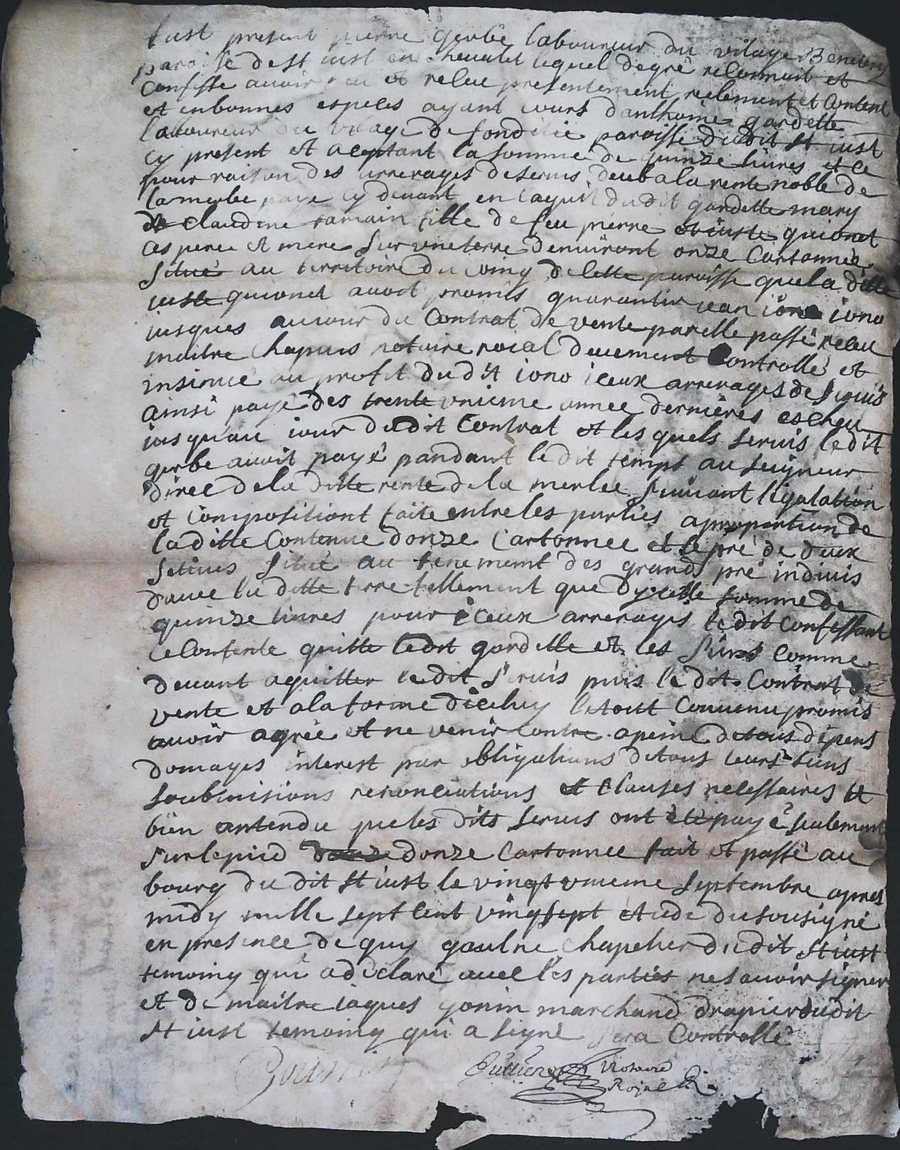 fust present pierre gerbe laboureur du vilage
paroisse de st iust en chevalet lequel de gré reconnoit et
confesse avoir eu et releu presentement reelement et content
et en bonnes especes ayant cours d'anthoine gardette
laboureur du vilage de fondelie paroisse du dit st iust
cy present et aceptant la somme de quinze livres et ce
pour raison des arrerages de servis deub a la rente noble de
la merlee paye cy devant en l'aquit du dit gardette mary
de claudine ramain fille de feu pierre et iuste quionet
ces pere et mere sur une terre d'environt onze cartonnee
situé au territoire du coing de cette paroisse que la ditte
iuste quionet avoit promis guarantir iean iono
iusques au iour du contrat de vente par elle passé releu
maitre chapuis notaire roial deuement controllé et
insinué au profit du dt iono iceux arrerages de servis
ainsi payé des trente unieme année dernieres escheu
iusqu'au iour du dit contrat et les quels servis le dit
gerbe avoit payé pandant le dit temps au seigneur
direc de la ditte rente de la merlee suivant l'egalation
et compositiont faite entre les parties a proportion de
la ditte contenue d'onze cartonnee et le pré de deux
setives situé au tenement des grands pré indivis
d'avec la ditte terre tellement que d'ycelle somme de
quinze livres pour iceux arrerages le dit confessant
ce contente quitte le dit gardette et les siens comme
devant aquitter le dit servis puis le dit contrat de
vente et a la forme d'icluy le tout convenu promis
avoir agrée et ne venir contre a pein de tous dépens
domages interest par obligations de tous leurs biens
soubmisions renonciations et clauses necessaires et
bien antendu que les dits servis ont été payé seulement
sur le pied d'onze cartonnee fait et passé au
bourg du dit st iust le vingt unieme septembre apres
midy mille sept cent vingt sept etude du sousigné
en presence de guy gaulne chapelier du dit st iust
temoing qui a déclaré avec les parties ne savoir signer
et de maitre iaques gonin marchand drapier du dit
st iust temoing qui a signé sera controllé
Notaire
Royal